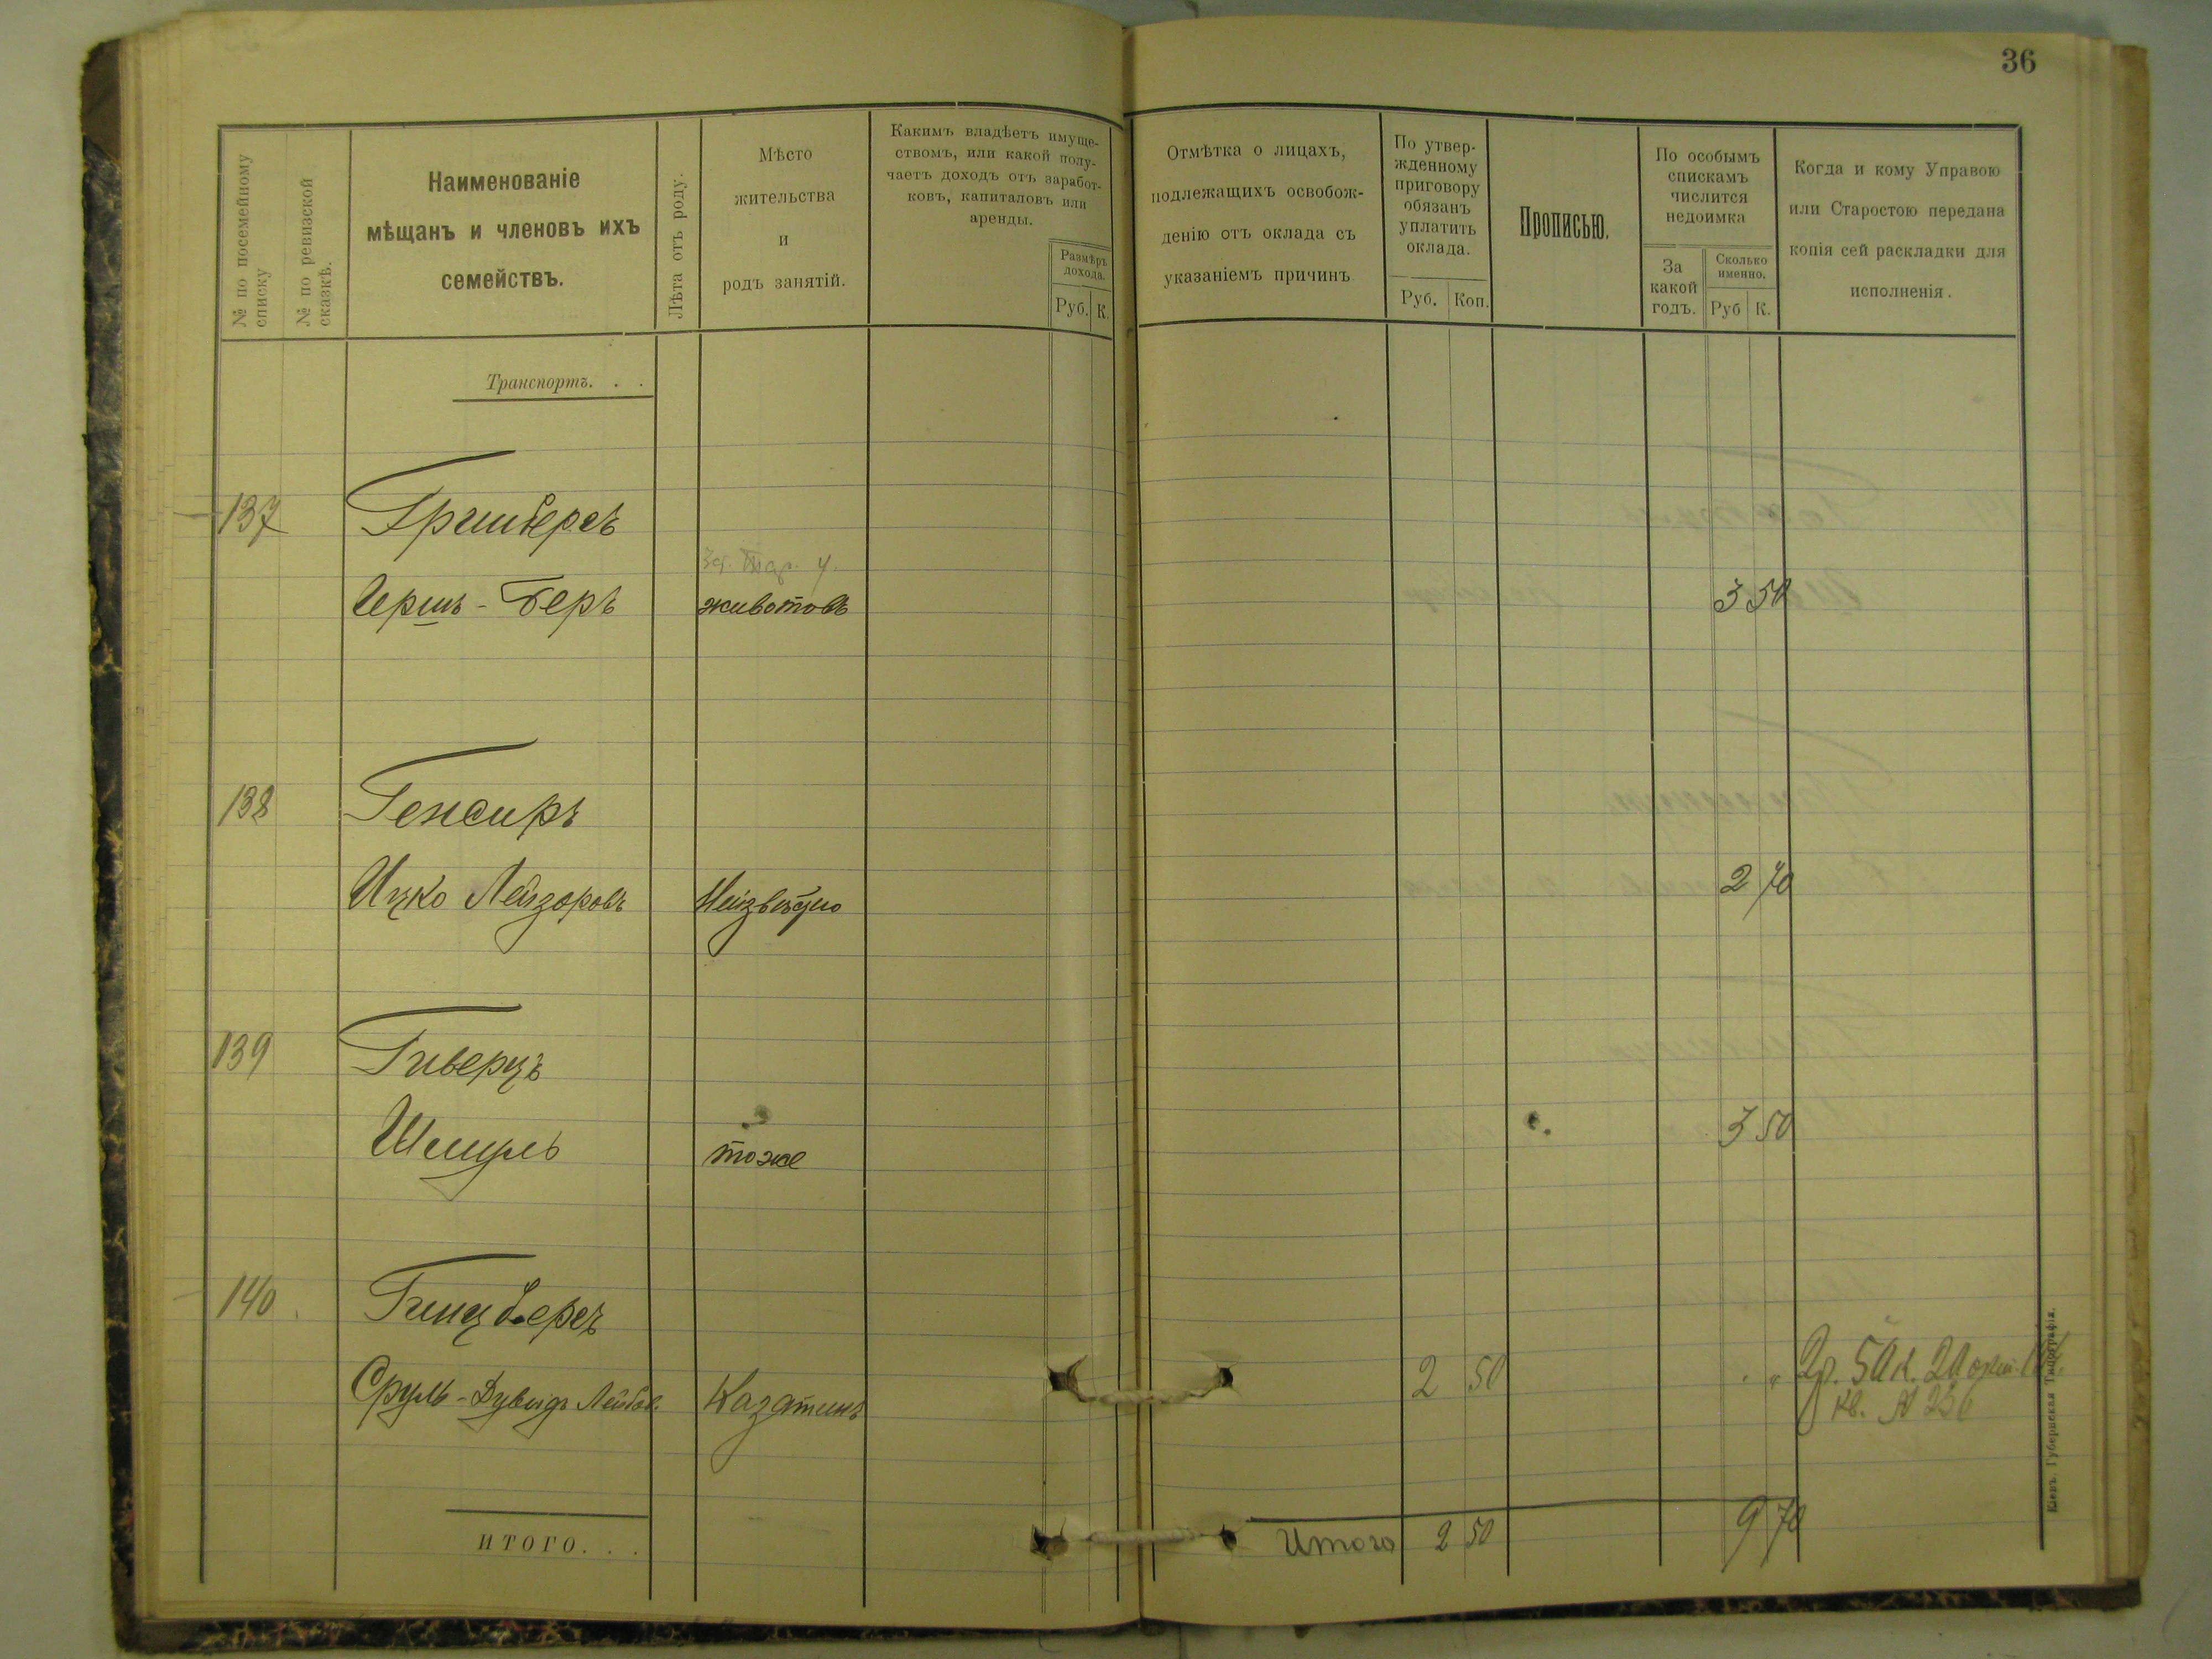 36
№ по посемейному
списку
№ по ревизской
сказкѣ.
Наименованіе
мѣщанъ и членовъ ихъ
семействъ.
Лѣта отъ роду.
Мѣсто
жительства
и
родъ занятій.
Какимъ владѣетъ имуще-
ствомъ, или какой полу-
чаетъ доходъ отъ заработ-
ковъ, капиталовъ или
аренды.
Размѣръ
дохода.
Руб. К.
Отмѣтка о лицахъ,
подлежащихъ освобож-
денію отъ оклада съ
указаніемъ причинъ
По утвер-
жденному
приговору
обязанъ
уплатить
оклада.
Руб. Коп.
Прописью.
По особымъ
спискамъ
числится
недоимка
За
какой
годъ.
Сколько
именно.
Руб К.
Когда и кому Управою
или Старостою передана
копія сей раскладки для
исполненія.
Транспортъ. . .
137 Гринбергъ
Іершъ-Беръ животовъ 3 50
138 Генсиръ
Ицко Лейзоровъ Неизвѣстно 2 70
139 Гиверцъ
Шмуль тоже 3 50
140 Гинцбергъ
Сруль-Дувидъ Лейбов. Казатинъ 2 50 2р. 50к. 20
кв. №
ИТОГО. . .
Итого 2 50 9 70
Кіевъ. Губернская Типографія.